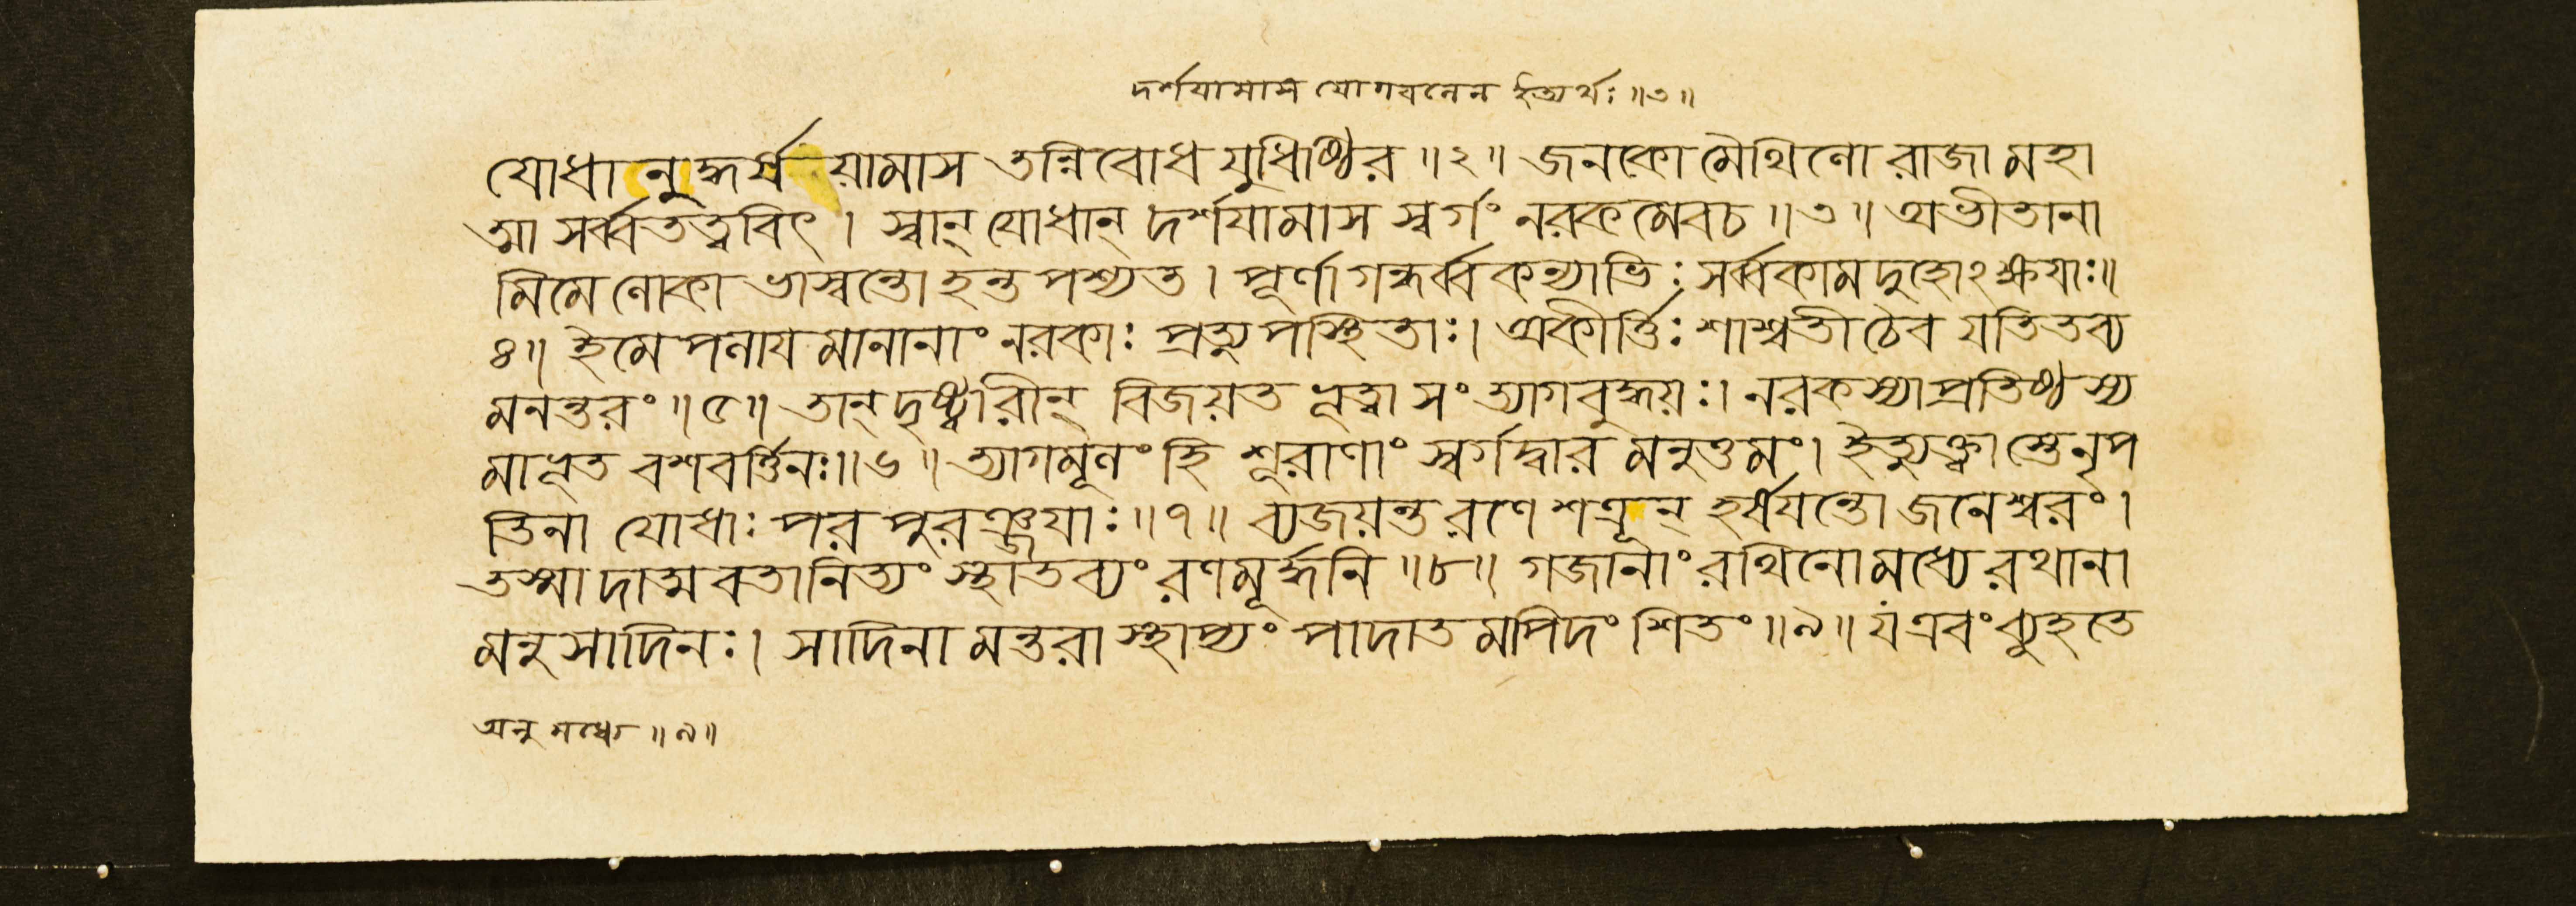 দর্শযামাস যোগবলেন ইত্যর্থঃ ॥৩॥
যোধানুদ্ধর্ষয়ামাস তন্নিবোধ যুধিষ্ঠির ॥২॥ জনকো মৈথিলো রাজা মহা
ত্মা সর্ব্বতত্ত্ববিৎ । স্বান্ যোধান্ দর্শযামাস স্বর্গং নরকমেবচ ॥৩॥ অভীতানা
মিমে লোকা ভাস্বন্তো হন্ত পশ্যত । পূর্ণা গন্ধর্ব্বকন্যাভিঃ সর্ব্বকামদুহোঽক্ষযাঃ॥
৪॥ ইমে পলাযমানানাং নরকাঃ প্রত্যুপস্থিতাঃ। অকীর্ত্তিঃ শাশ্বতী চৈব যতিতব্য
মনন্তরং ॥৫॥ তান্ দৃষ্ট্বারীন্ বিজয়ত ভূত্বা সংত্যাগবুদ্ধয়ঃ। নরকস্যাপ্রতিষ্ঠস্য
মাভূত বশবর্ত্তিনঃ॥৬॥ ত্যাগমূলং হি শূরাণাং স্বর্গদ্বারমনুত্তমং। ইত্যুক্ত্বাস্তে নৃপ
তিনা যোধাঃ পরপুরঞ্জযাঃ ॥৭॥ ব্যজয়ন্ত রণে শত্রূন্ হর্ষযন্তো জনেশ্বরং।
তস্মাদাত্মবতা নিত্যং স্থাতব্যং রণমূর্দ্ধনি ॥৮॥ গজানাং রথিনো মধ্যে রথানা
মনু সাদিনঃ। সাদিনামন্তরা স্থাপ্যং পাদাতমপি দংশিতং ॥৯॥ য এবং ব্যূহতে
অনু মধ্যে ॥৯॥